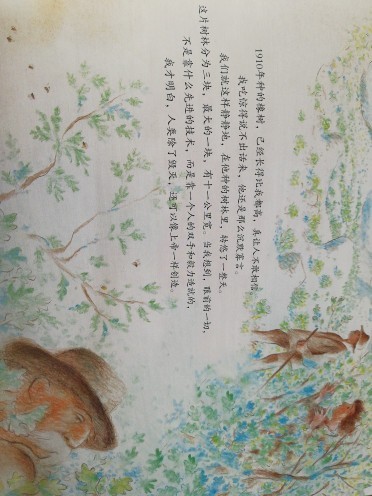 1910年种的橡树，已经长得比我都高，真让人不敢相信。
我吃惊得说不出话来，他还是那么沉默寡言。
我们就这样静静地，在他种的树林里，转悠了一整天。
这片树林分为三块，最大的一块，有十一公里宽。当我想到，眼前的一切，
不是靠什么先进的技术，而是靠一个人的双手和毅力造就的，
我才明白，人类除了毁灭，还可以像上帝一样创造。